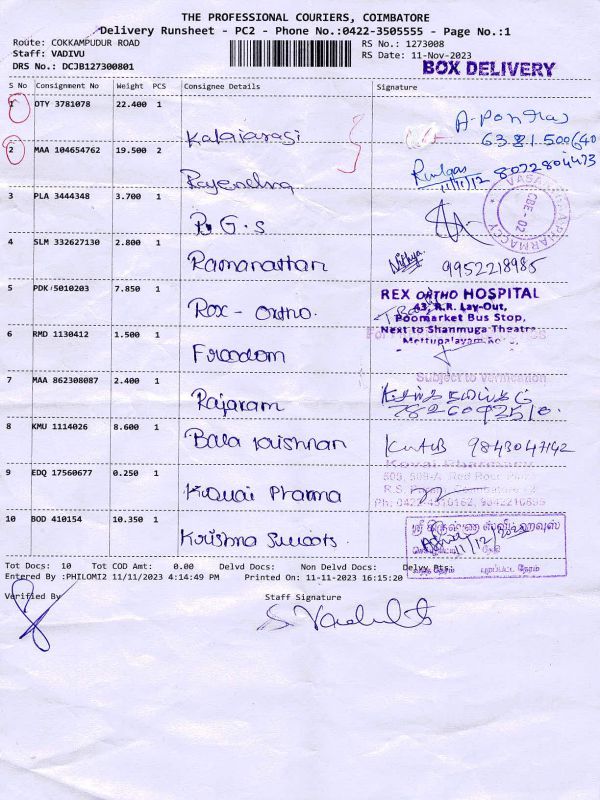 THE PROFESSIONAL COURIERS, COIMBATORE
Delivery Runsheet - PC2 - Phone No.:0422-3505555 - Page No.:1
Route: COKKAMPUDUR ROAD RS No.: 1273008
Staff: VADIVU RS Date: 11-Nov-2023
DRS No.: DCJB127300801 BOX DELIVERY
S No Consignment No Weight PCS Consignee Details Signature
1 DTY 3781078 22.400 1 Kalaiarasi
6381500640
2 MAA 104654762 19.500 2 Rajendra 8072804473
11/11/12
3 PLA 3444348 3.700 1 B.G.S
CBE - 02
4 SLM 332627130 2.800 1 Ramanattan Nithya. 9952218985
5 PDK 5010203 7.850 1 Rox - ortho.
REX ORTHO HOSPITAL
43, R.R. Lay-Out,
Poomarket Bus Stop,
Next to Shanmuga Theatre,
6 RMD 1130412 1.500 1 Froodom
Subject to Verification
7 MAA 862308087 2.400 1 Rajaram
8 KMU 1114026 8.600 1 Bala Krishnan 9843047142
9 EDQ 17560677 0.250 1 Kovai Pharma
Kovai Pharmacy
10 BOD 410154 10.350 1 Krishna Sweets.
ஸ்ரீ கிருஷ்ணா ஸ்வீட் ஹவுஸ்
11/12/
வந்த நேரம் புறப்பட்ட நேரம்
Tot Docs: 10 Tot COD Amt: 0.00 Delvd Docs: Non Delvd Docs: Delvy Pts:
Entered By :PHILOMI2 11/11/2023 4:14:49 PM Printed On: 11-11-2023 16:15:20
Verified By Staff Signature